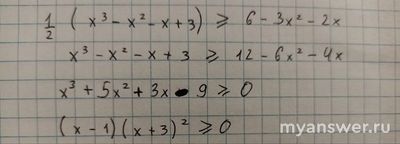 1/2 ( x³ - x² - x + 3 ) ≥ 6 - 3x² - 2x
x³ - x² - x + 3 ≥ 12 - 6x² - 4x
x³ + 5x² + 3x - 9 ≥ 0
(x - 1) (x + 3)² ≥ 0
myanswer.ru